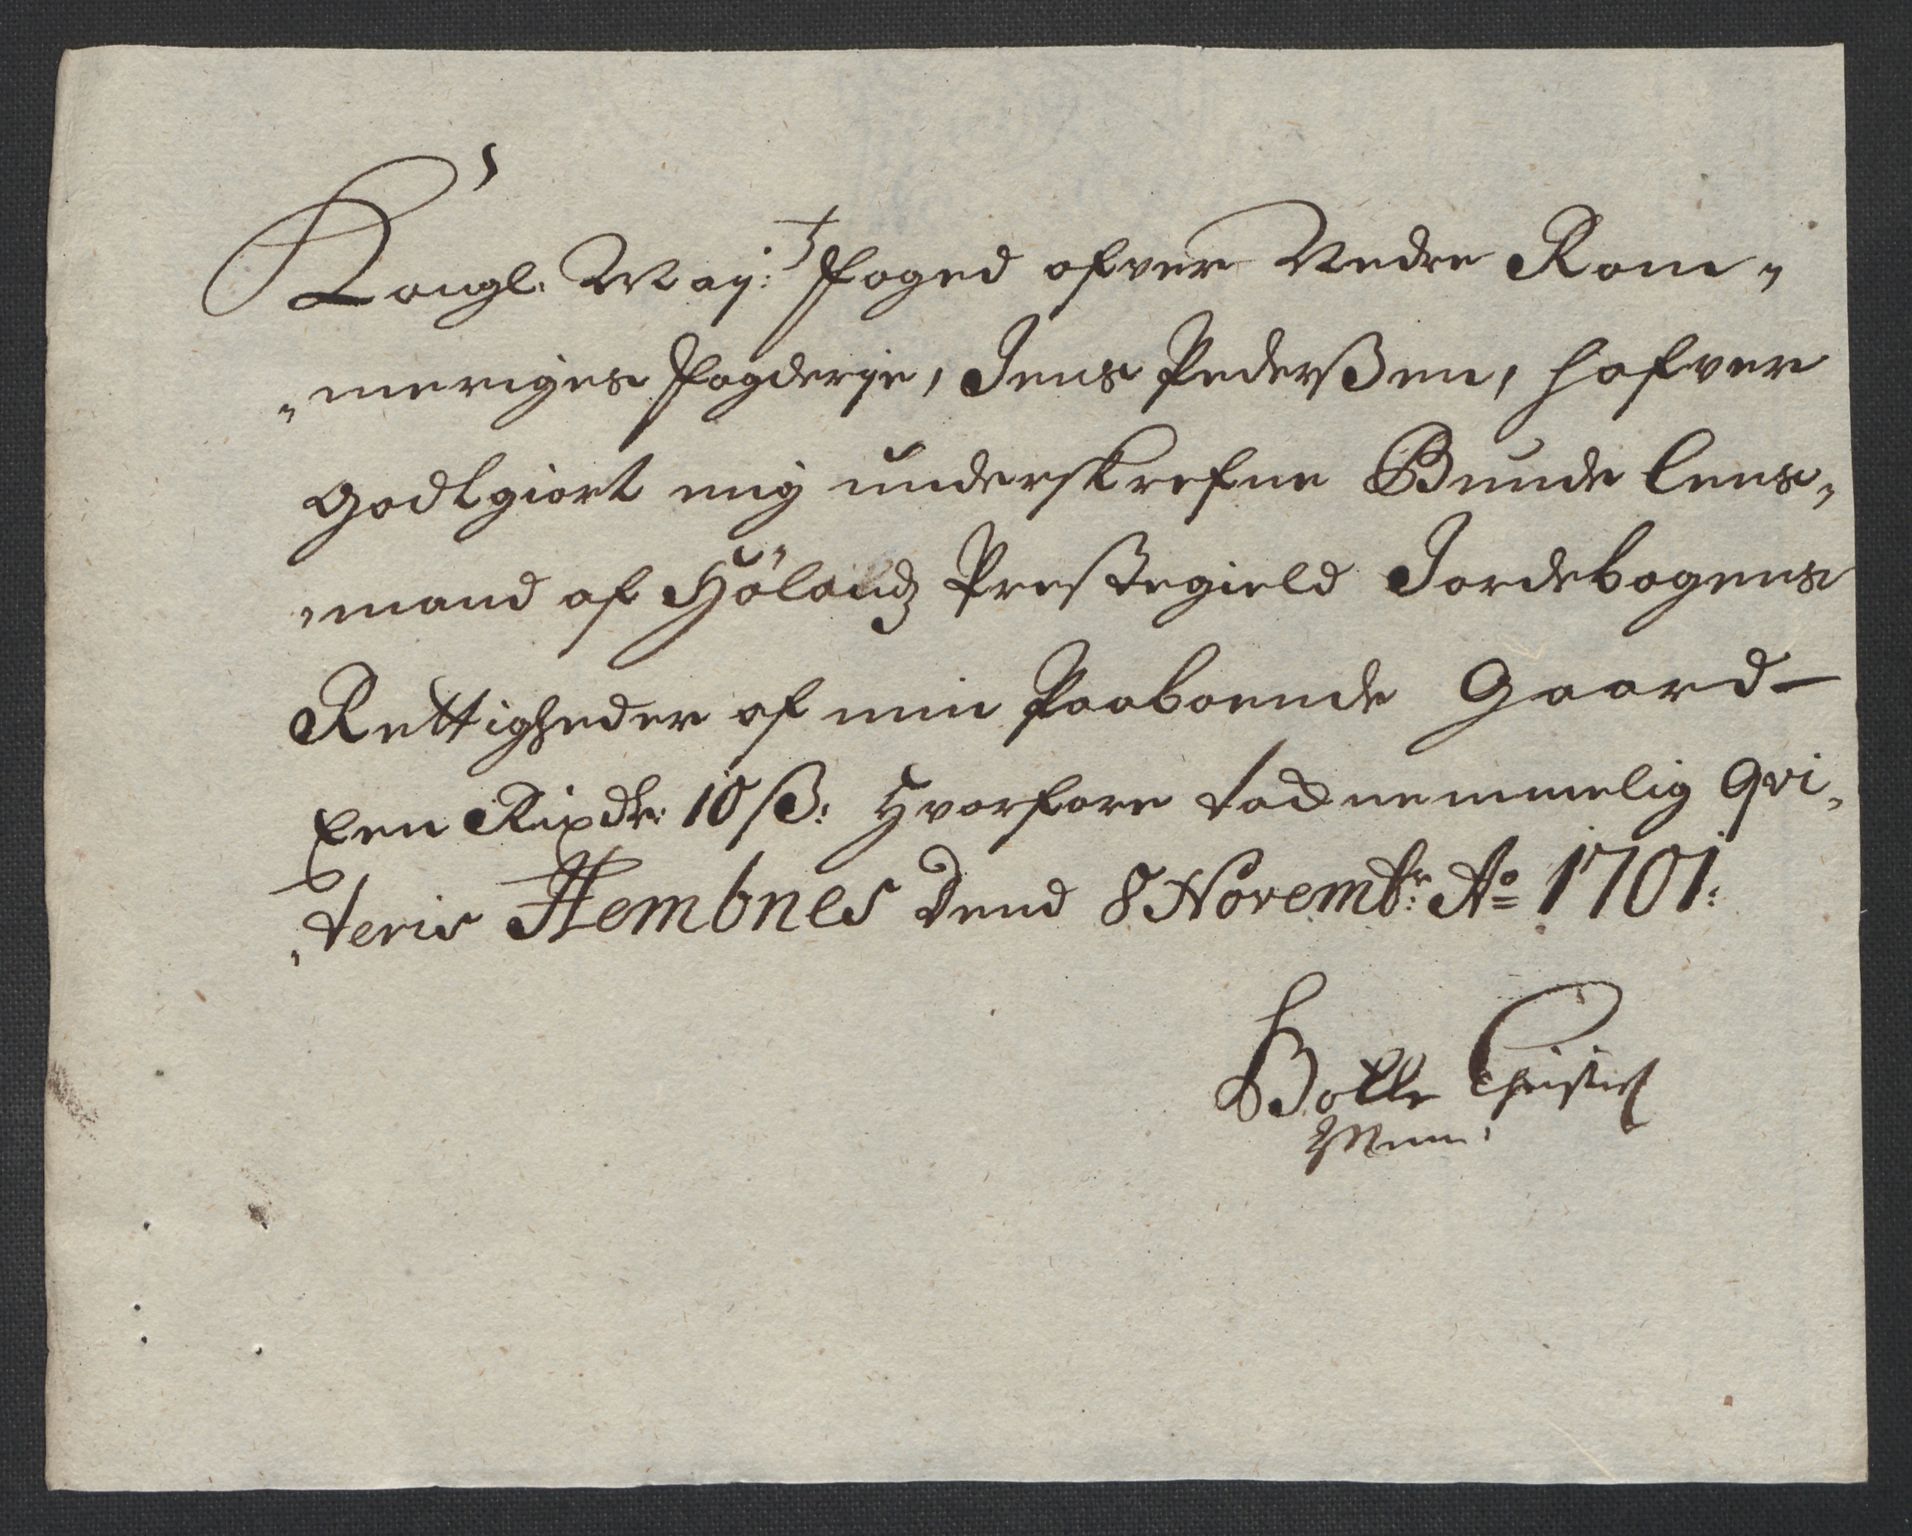 Kongl. May:t Foged ofver Nedre Rom-
-meriges Fogderje, Jens Pederßen, hafver
godtgiort mig underskrefne Bunde lens-
-mand af Hölandz Preßtegield Jordebogens
Rettigheder af min Paaboende Gaard
Een Rixdr: 10 ß: Hvorfore tacknemmelig qvi-
-teris Hembnes dend 8 Novembr: Ao 1701:
Bolle Christens